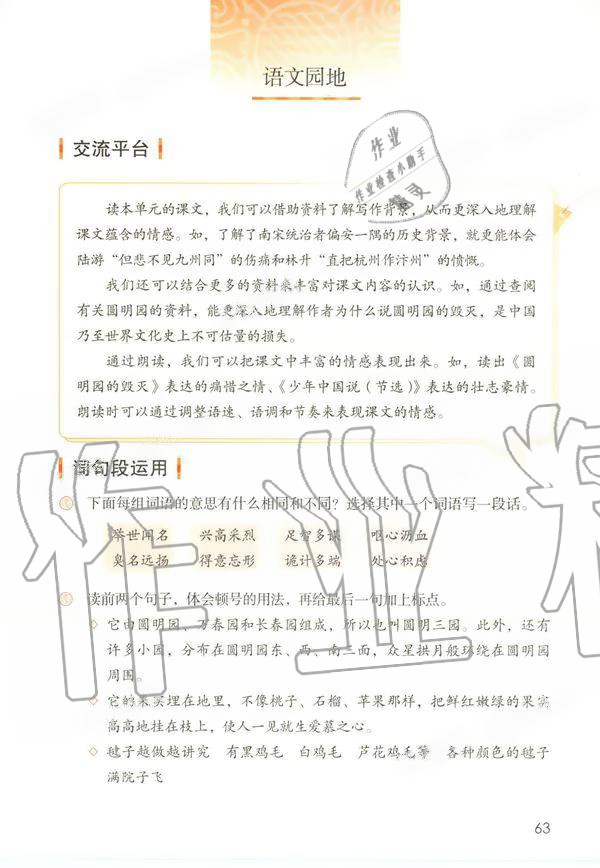 语文园地
交流平台
作业
作业检查小助手
读本单元的课文，我们可以借助资料了解写作背景，从而更深入地理解
课文蕴含的情感。如，了解了南宋统治者偏安一隅的历史背景，就更能体会
陆游“但悲不见九州同”的伤痛和林升“直把杭州作汴州”的愤慨。
我们还可以结合更多的资料来丰富对课文内容的认识。如，通过查阅
有关圆明园的资料，能更深入地理解作者为什么说圆明园的毁灭，是中国
乃至世界文化史上不可估量的损失。
通过朗读，我们可以把课文中丰富的情感表现出来。如，读出《圆
明园的毁灭》表达的痛惜之情、《少年中国说（节选）》表达的壮志豪情。
朗读时可以通过调整语速、语调和节奏来表现课文的情感。
词句段运用
下面每组词语的意思有什么相同和不同？选择其中一个词语写一段话。
举世闻名 兴高采烈 足智多谋 呕心沥血
臭名远扬 得意忘形 诡计多端 处心积虑
读前两个句子，体会顿号的用法，再给最后一句加上标点。
◇ 它由圆明园、万春园和长春园组成，所以也叫圆明三园。此外，还有
许多小园，分布在圆明园东、西、南三面，众星拱月般环绕在圆明园
周围。
◇ 它的果实埋在地里，不像桃子、石榴、苹果那样，把鲜红嫩绿的果实
高高地挂在枝上，使人一见就生爱慕之心。
◇ 毽子越做越讲究 有黑鸡毛 白鸡毛 芦花鸡毛等 各种颜色的毽子
满院子飞
63
作业